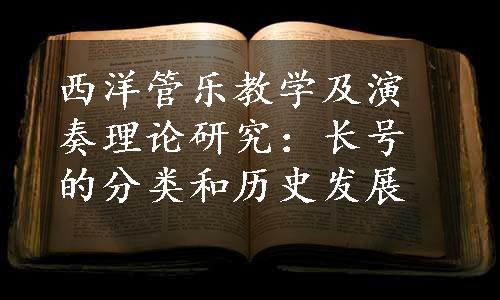 西洋管乐教学及演
奏理论研究：长号
的分类和历史发展